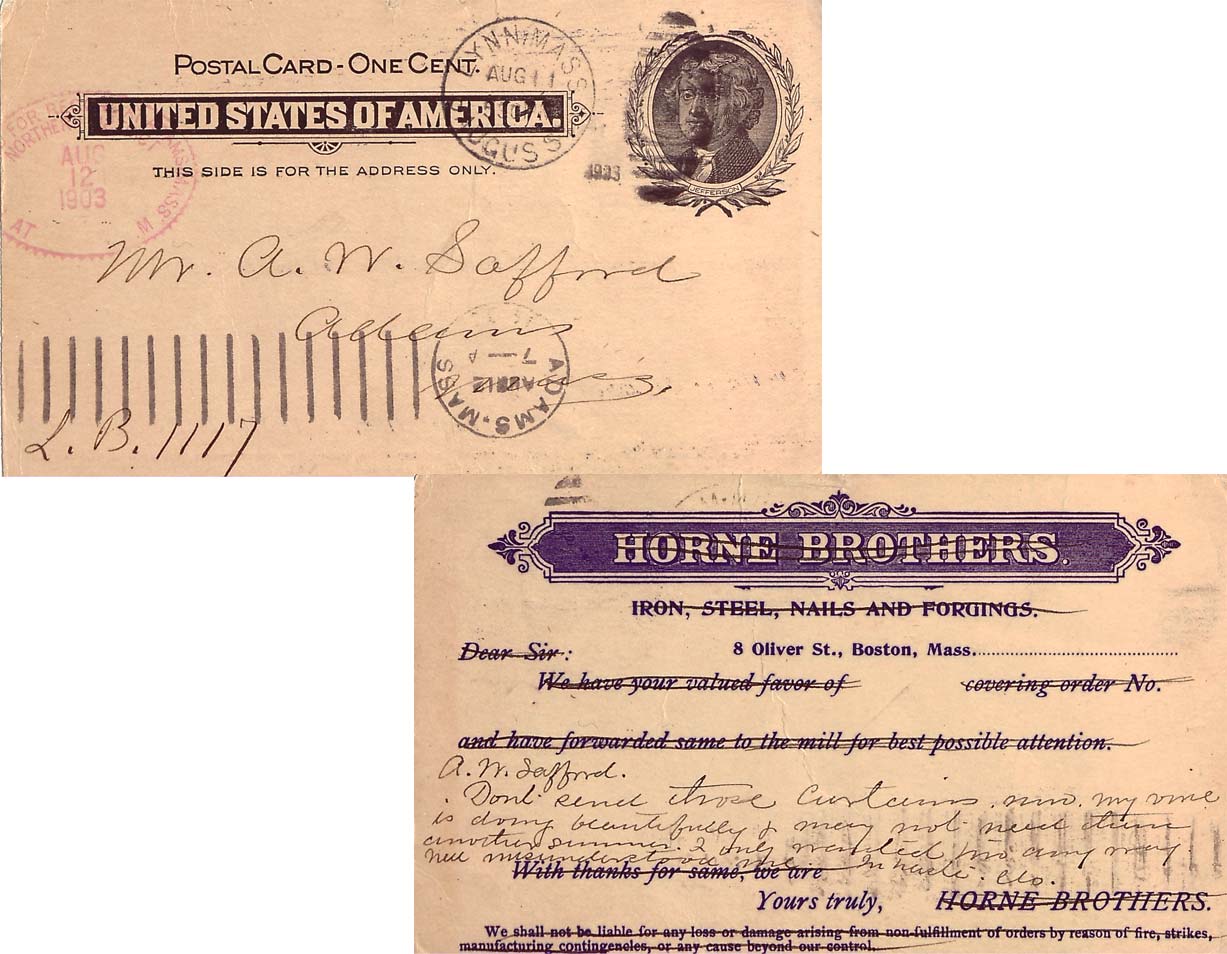 POSTAL CARD - ONE CENT.
UNITED STATES OF AMERICA.
THIS SIDE IS FOR THE ADDRESS ONLY.
LYNN, MASS.
AUG 11
1903
JEFFERSON
AUG
12
1903
AT
Mr. A. W. Safford
Adams
Mass.
ADAMS. MASS
7 — A
L. B. 1117
HORNE BROTHERS.
IRON, STEEL, NAILS AND FORGINGS.
Dear Sir:
8 Oliver St., Boston, Mass.
We have your valued favor of covering order No.
and have forwarded same to the mill for best possible attention.
A. W. Safford.
Dont send those Curtains my vine
is doing beautefully & may not need them
another summer. I only wanted any way
misunderstood me.
With thanks for same, we are
Yours truly, HORNE BROTHERS.
We shall not be liable for any loss or damage arising from non-fulfillment of orders by reason of fire, strikes,
manufacturing contingencies, or any cause beyond our control.